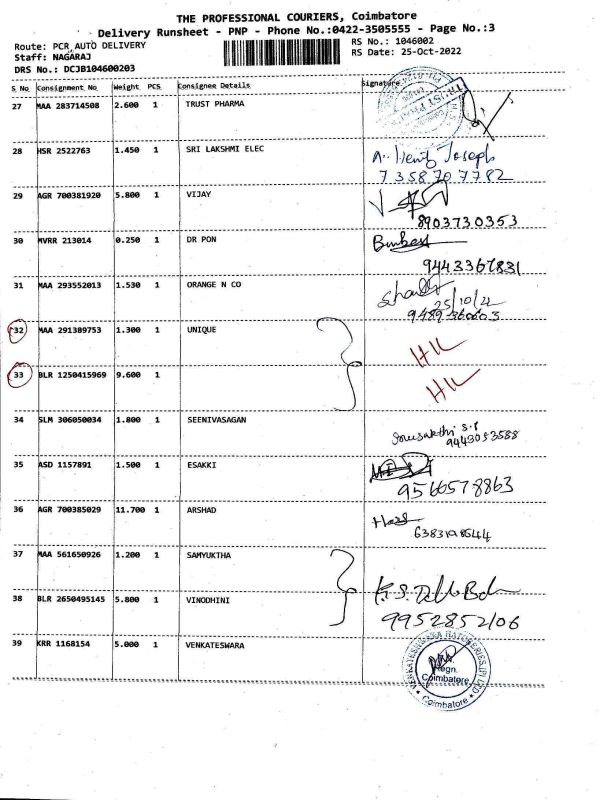 THE PROFESSIONAL COURIERS, Coimbatore
Delivery Runsheet - PNP - Phone No.:0422-3505555 - Page No.:3
Route: PCR AUTO DELIVERY
RS No.: 1046002
Staff: NAGARAJ
RS Date: 25-Oct-2022
DRS No.: DCJB104600203
S No Consignment No Weight PCS Consignee Details Signature
27 MAA 283714508 2.600 1 TRUST PHARMA
28 HSR 2522763 1.450 1 SRI LAKSHMI ELEC
Joseph
7358707782
29 AGR 700381920 5.800 1 VIJAY
8903730353
30 MVRR 213014 0.250 1 DR PON
9443367831
31 MAA 293552013 1.530 1 ORANGE N CO
25/10/22
32 MAA 291389753 1.300 1 UNIQUE
33 BLR 1250415969 9.600 1
34 SLM 306050034 1.800 1 SEENIVASAGAN
9443053588
35 ASD 1157891 1.500 1 ESAKKI
9566578863
36 AGR 700385029 11.700 1 ARSHAD
37 MAA 561650926 1.200 1 SAMYUKTHA
38 BLR 2650495145 5.800 1 VINODHINI
9952852106
39 KRR 1168154 5.000 1 VENKATESWARA
Coimbatore
Coimbatore